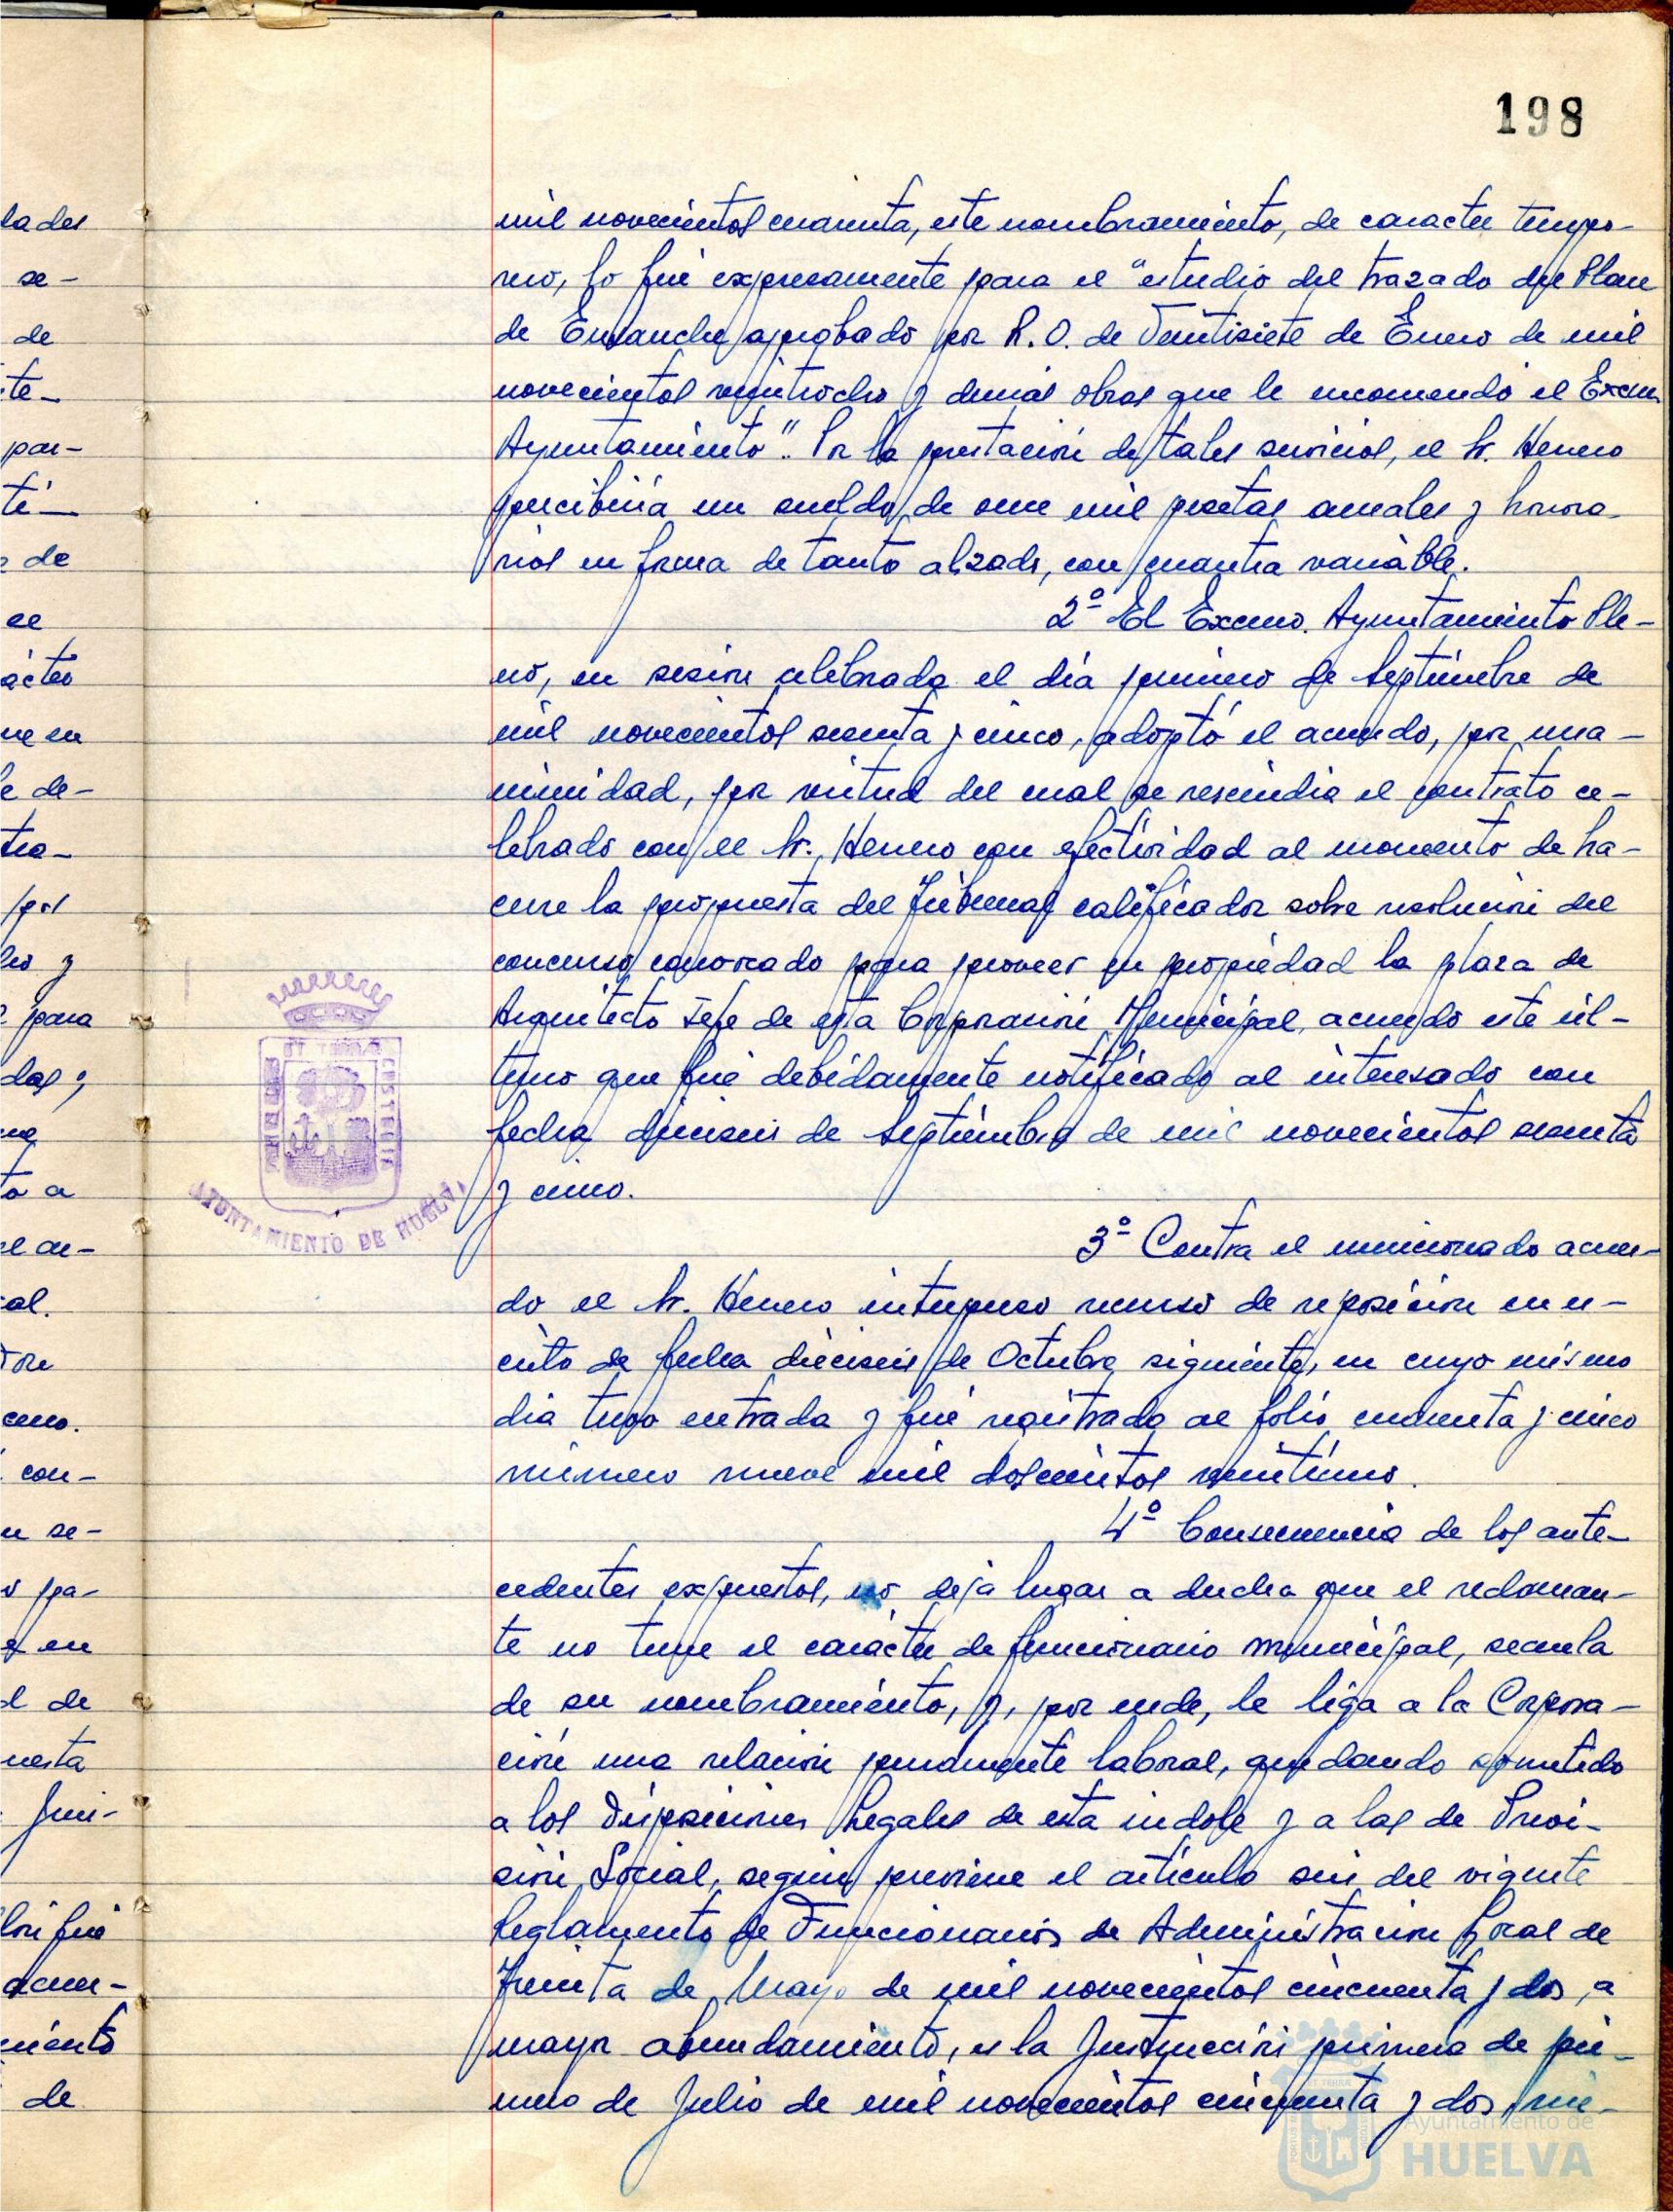 198
mil novecientos cuarenta, este nombramiento, de caracter tempo-
rero, lo fué expresamente para el "estudio del trazado del Plan
de Ensanche aprobado por R.O. de Veintisiete de Enero de mil
novecientos veintiocho y demás obras que le encomendó el Excmo
Ayuntamiento". Por la prestación de tales servicios, el Sr. Herrero
percibiría un sueldo de once mil pesetas anuales y honora-
rios en forma de tanto alzado, con cuantia variable.
2º El Excmo. Ayuntamiento Ple-
no, en sesión celebrada el día primero de Septiembre de
mil novecientos sesenta y cinco, adoptó el acuerdo, por una-
nimidad, por virtud del cual se rescindia el contrato ce-
lebrado con el Sr. Herrero con efectividad al momento de ha-
cerse la propuesta del Tribunal calificador sobre resolución del
concurso convocado para proveer en propiedad la plaza de
Arquitecto Jefe de esta Corporación Municipal, acuerdo este úl-
timo que fué debidamente notificado al interesado con
fecha dieciseis de Septiembre de mil novecientos sesenta
y cinco.
3º Contra el mencionado acuer-
do el Sr. Herrero interpuso recurso de reposición en es-
crito de fecha dieciseis de Octubre siguiente, en cuyo mismo
día tuvo entrada y fué registrado al folio cuarenta y cinco
número nueve mil doscientos veintiuno.
4º Consecuencia de los ante-
cedentes expuestos, no deja lugar a ducha que el reclaman-
te no tiene el carácter de funcionario municipal, secuela
de su nombramiento, y, por ende, le liga a la Corpora-
ción una relación puramente laboral, quedando sometido
a los Disposiciones Legales de esta indole y a las de Previ-
sión Social, según previene el artículo seis del vigente
Reglamento de Funcionarios de Administración Local de
Treinta de Mayo de mil novecientos cincuenta y dos, a
mayor abundamiento, es la Instrucción primera de pri-
mero de Julio de mil novecientos cincuenta y dos,
AYUNTAMIENTO DE HUELVA
Ayuntamiento de
HUELVA